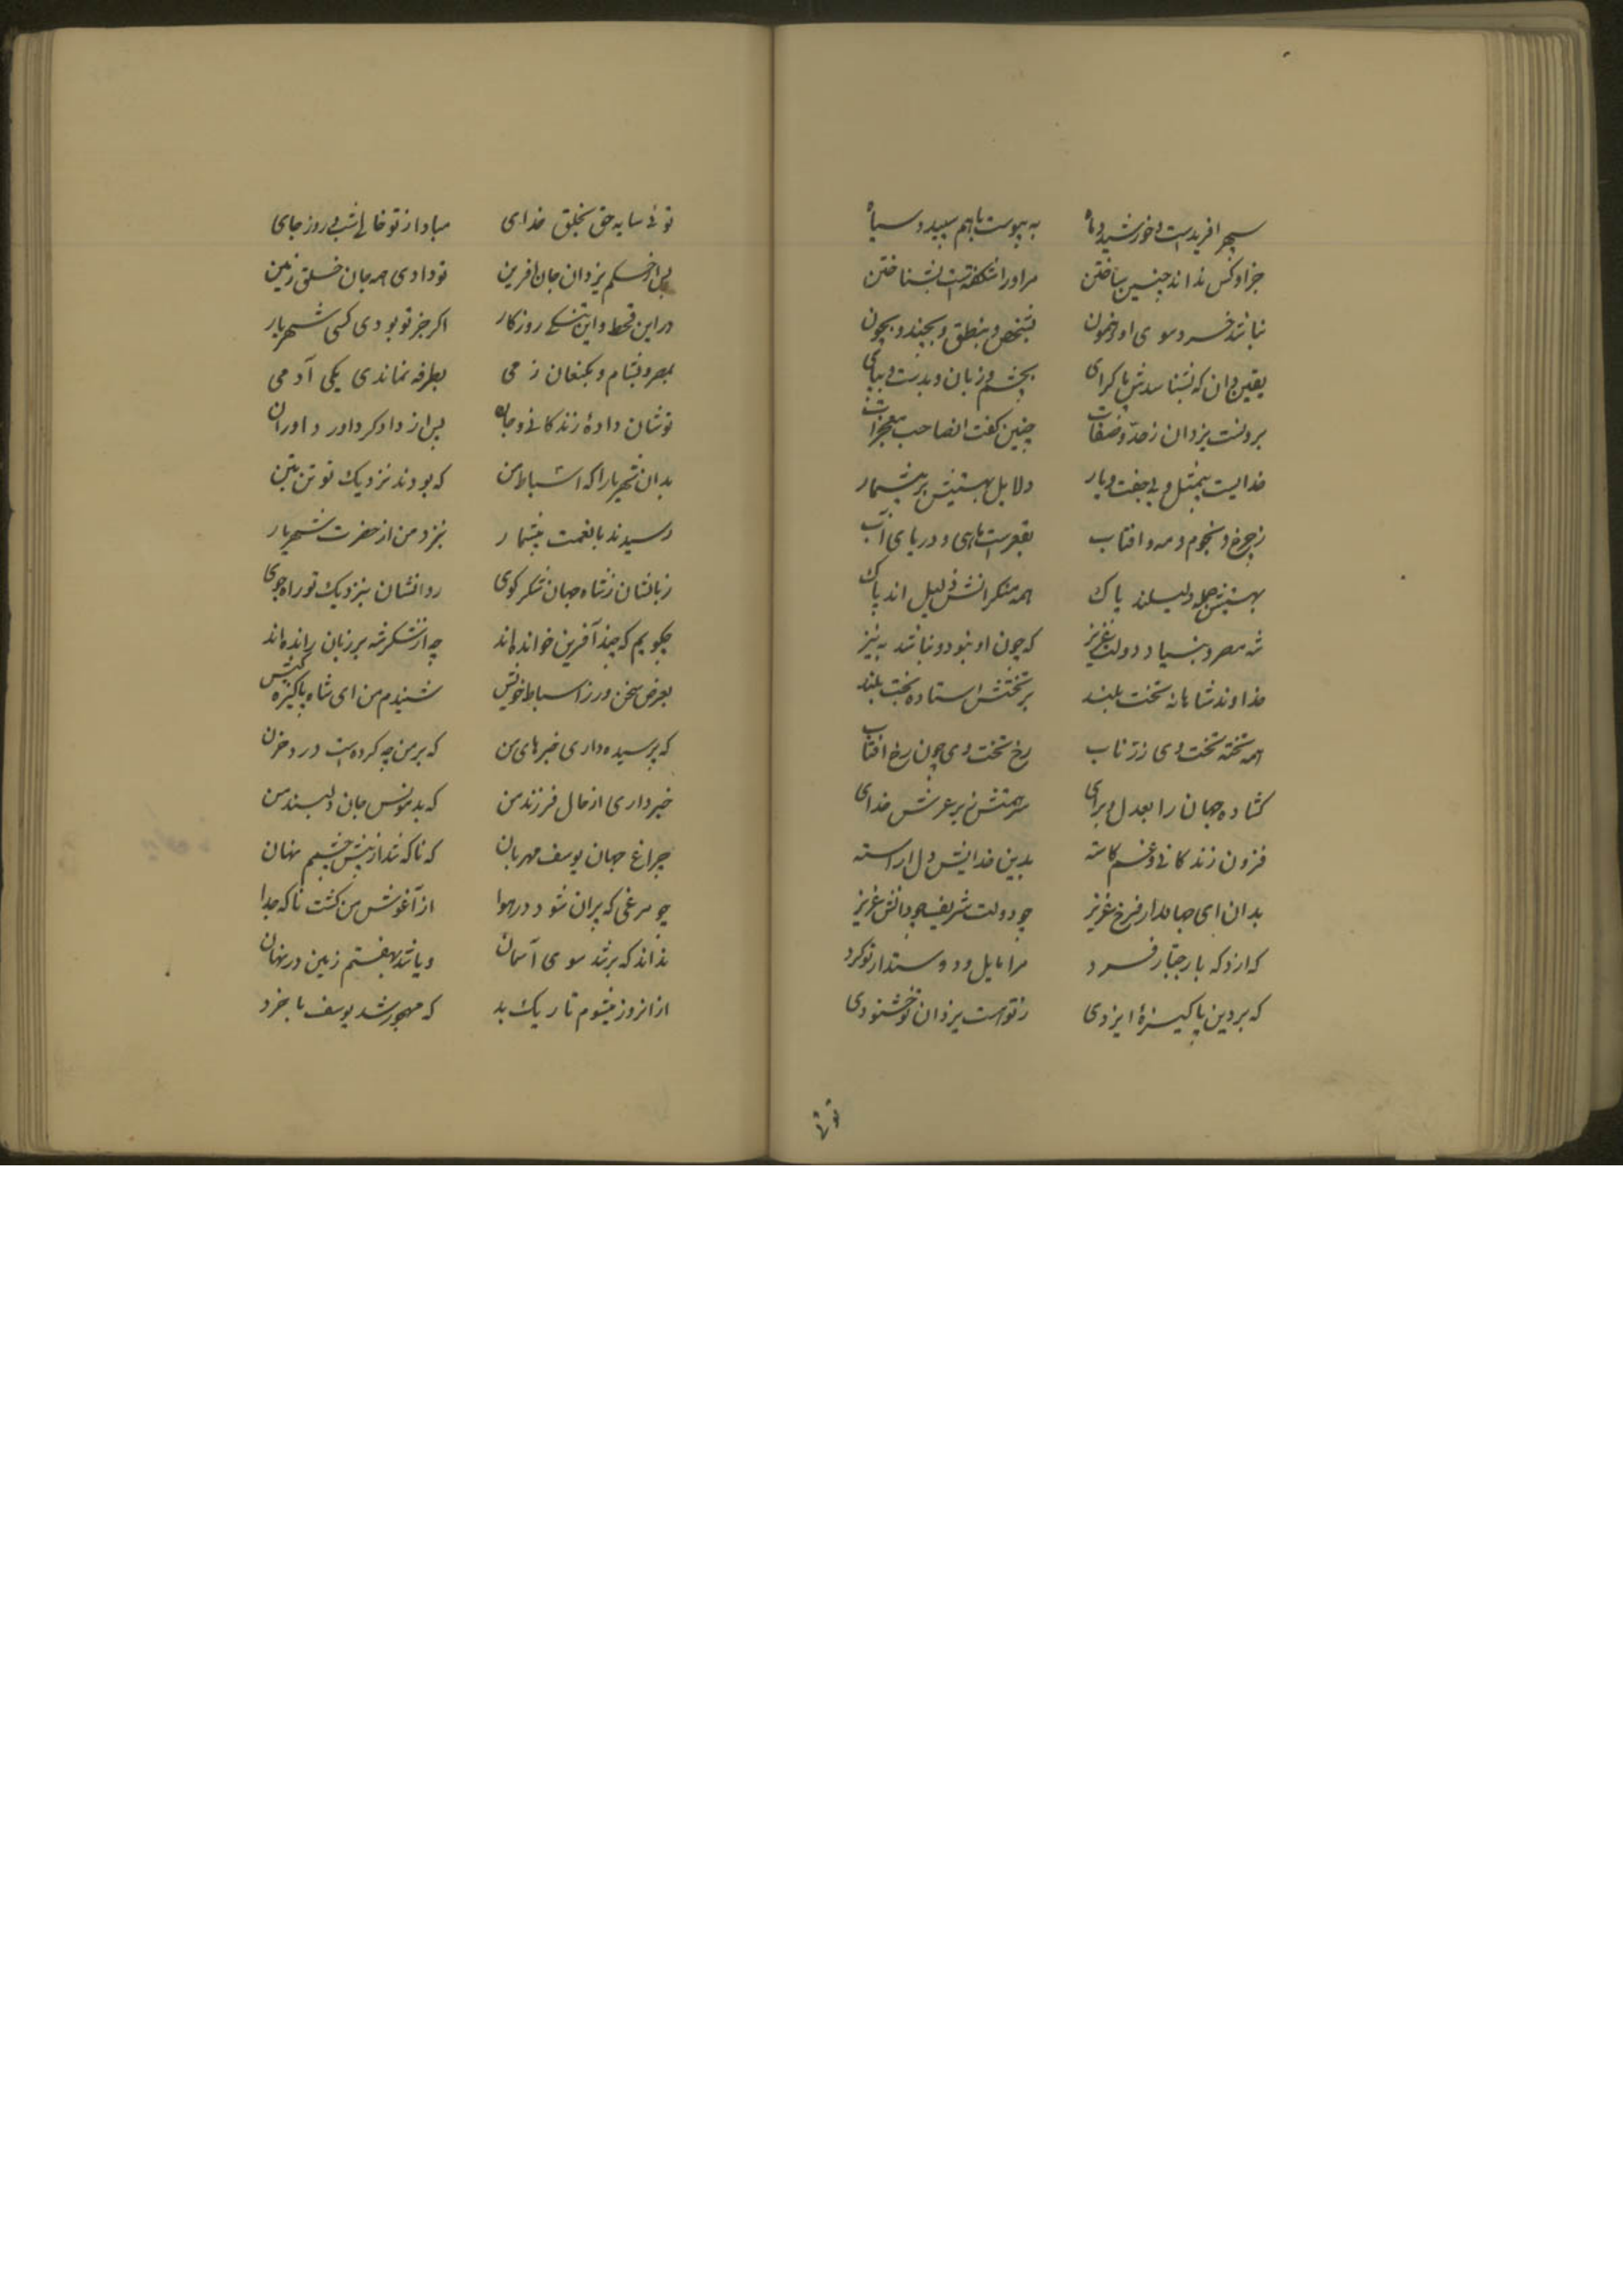 سپهر افریدست و خورشید و ماه به پیوست با هم سپید و سیاه
جز او کس نداند چنین ساختن مر او را شکفتست بشناختن
نباشد خرد سوی او رهنمون بشخص و بنطق و بچند و بچون
یقین دان که نشناسدش پاک رای بچشم و زبان و بدست و بپای
برونست یزدان ز حد و صفات چنین کفت ان صاحب معجزات
خدایست بیمثل و بی جفت و یار دلایل بهستیش بر بیشمار
ز چرخ و نجوم و مه و افتاب بقعرست ماهی و دریای آب
بهستیش جمله دلیلند پاک همه منکرانش ذلیل اند پاک
شه مصر و بنیاد دولت عزیز که چون او نبود و نباشد به نیز
خداوند شاهانه تخت بلند بر تختش استاده بخت بلند
همه تخته تخت وی زر ناب رخ تخت وی چون رخ افتاب
کشاده جهان را بعدل و برای سر همتش زیر عرش خدای
فزون زندکانی و غم کاسته بدین خدایش دل اراسته
بدان ای جهاندار فرخ عزیز چو دولت شریف و چو دانش عزیز
که ایزد که بار جبار فرد مرا مایل و دوستدار تو کرد
که بر دین پاکیزهٔ ایزدی ز تو هست یزدان تو خشنودی
توئی
توئی سایه حق بخلق خدای مبادا ز تو خالی شب و روز جای
پس از حکم یزدان جان افرین تو دادی همه جان خلق زمین
در این قحط و این تنکی روزکار اکر جز تو بودی کسی شهریار
بمصر و بشام و بکنعان زمی بطرفه نماندی یکی آدمی
توشان دادهٔ زندکانی و جان پس از داد کر داور داوران
بدان شهریارا که اسباط من که بودند نزدیک تو تن بتن
رسیدند با نعمت بیشمار بنزد من از حضرت شهریار
زبانشان ز شاه جهان شکر کوی روانشان بنزدیک تو راه جوی
چکویم که چند آفرین خوانده اند چه از شکر شه بر زبان رانده اند
بعرض سخن ور ز اسباط خویش شنیدم من ای شاه پاکیزه کیش
که پرسیده داری خبرهای من که بر من چه کرده ست درد و حزن
خبر داری از حال فرزند من که بد مونس جان دلبند من
چراغ جهان یوسف مهربان که ناکه شد از پیش چشمم نهان
چو مرغی که پران شود در هوا از آغوش من کشت ناکه جدا
نداند که بر شد سوی آسمان و یا شد بهفتم زمین در نهان
از انروز میشوم تاریک بد که مهجور شد یوسف با خرد